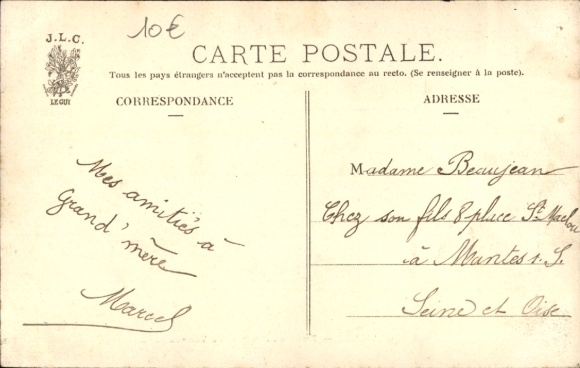 10€
J.L.C.
LE GUI
CARTE POSTALE.
Tous les pays étrangers n'acceptent pas la correspondance au recto. (Se renseigner à la poste).
CORRESPONDANCE
Mes amitiés à
Grand' mère
Marcel
ADRESSE
Madame Beaujean
Chez son fils 8 place St Maclou
à Mantes s. S.
Seine et Oise